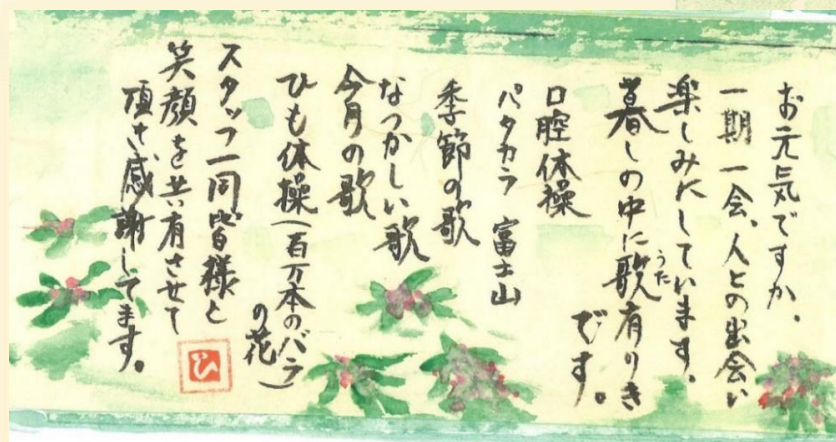 お元気ですか、
一期一会、人との出会い
楽しみにしています。
暮しの中に歌有りき
うた
です。
口腔体操
パタカラ 富士山
季節の歌
なつかしい歌
今月の歌
ひも体操(百万本のバラ
の花)
スタッフ一同皆様と
笑顔を共有させて
頂き感謝してます。
ひ